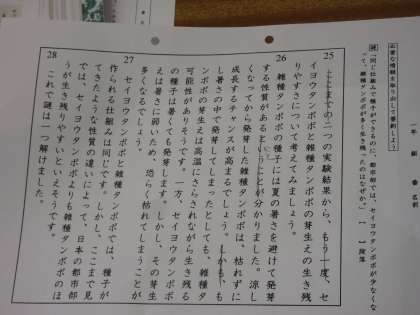 一年 組 番 名前
必要な情報を取り出して要約しよう
「同じ仕組みで種子ができるのに、都市部では、セイヨウタンポポが少なくな
って、雑種タンポポが多く生き残ったのはなぜか。」【 】段落
25 ここまでの二つの実験結果から、もう一度、セ
イヨウタンポポと雑種タンポポの芽生えの生き残
りやすさについて考えてみましょう。
26 雑種タンポポの種子には夏の暑さを避けて発芽
する性質があるということが分かりました。涼し
くなってから発芽した雑種タンポポは、枯れずに
成長するチャンスが高まるでしょう。しかも、も
し暑さの中で発芽してしまったとしても、雑種タ
ンポポの芽生えは高温にさらされながら生き残る
可能性がありそうです。一方、セイヨウタンポポ
の種子は暑くても発芽します。しかし、その芽生
えは暑さに弱いため、恐らく枯れてしまうことが
多くなるでしょう。
27 セイヨウタンポポと雑種タンポポでは、種子が
作られる仕組みは同じです。しかし、ここまで見
てきたような性質の違いによって、日本の都市部
では、セイヨウタンポポよりも雑種タンポポのほ
うが生き残りやすいといえそうです。
28 これで謎は一つ解けました。